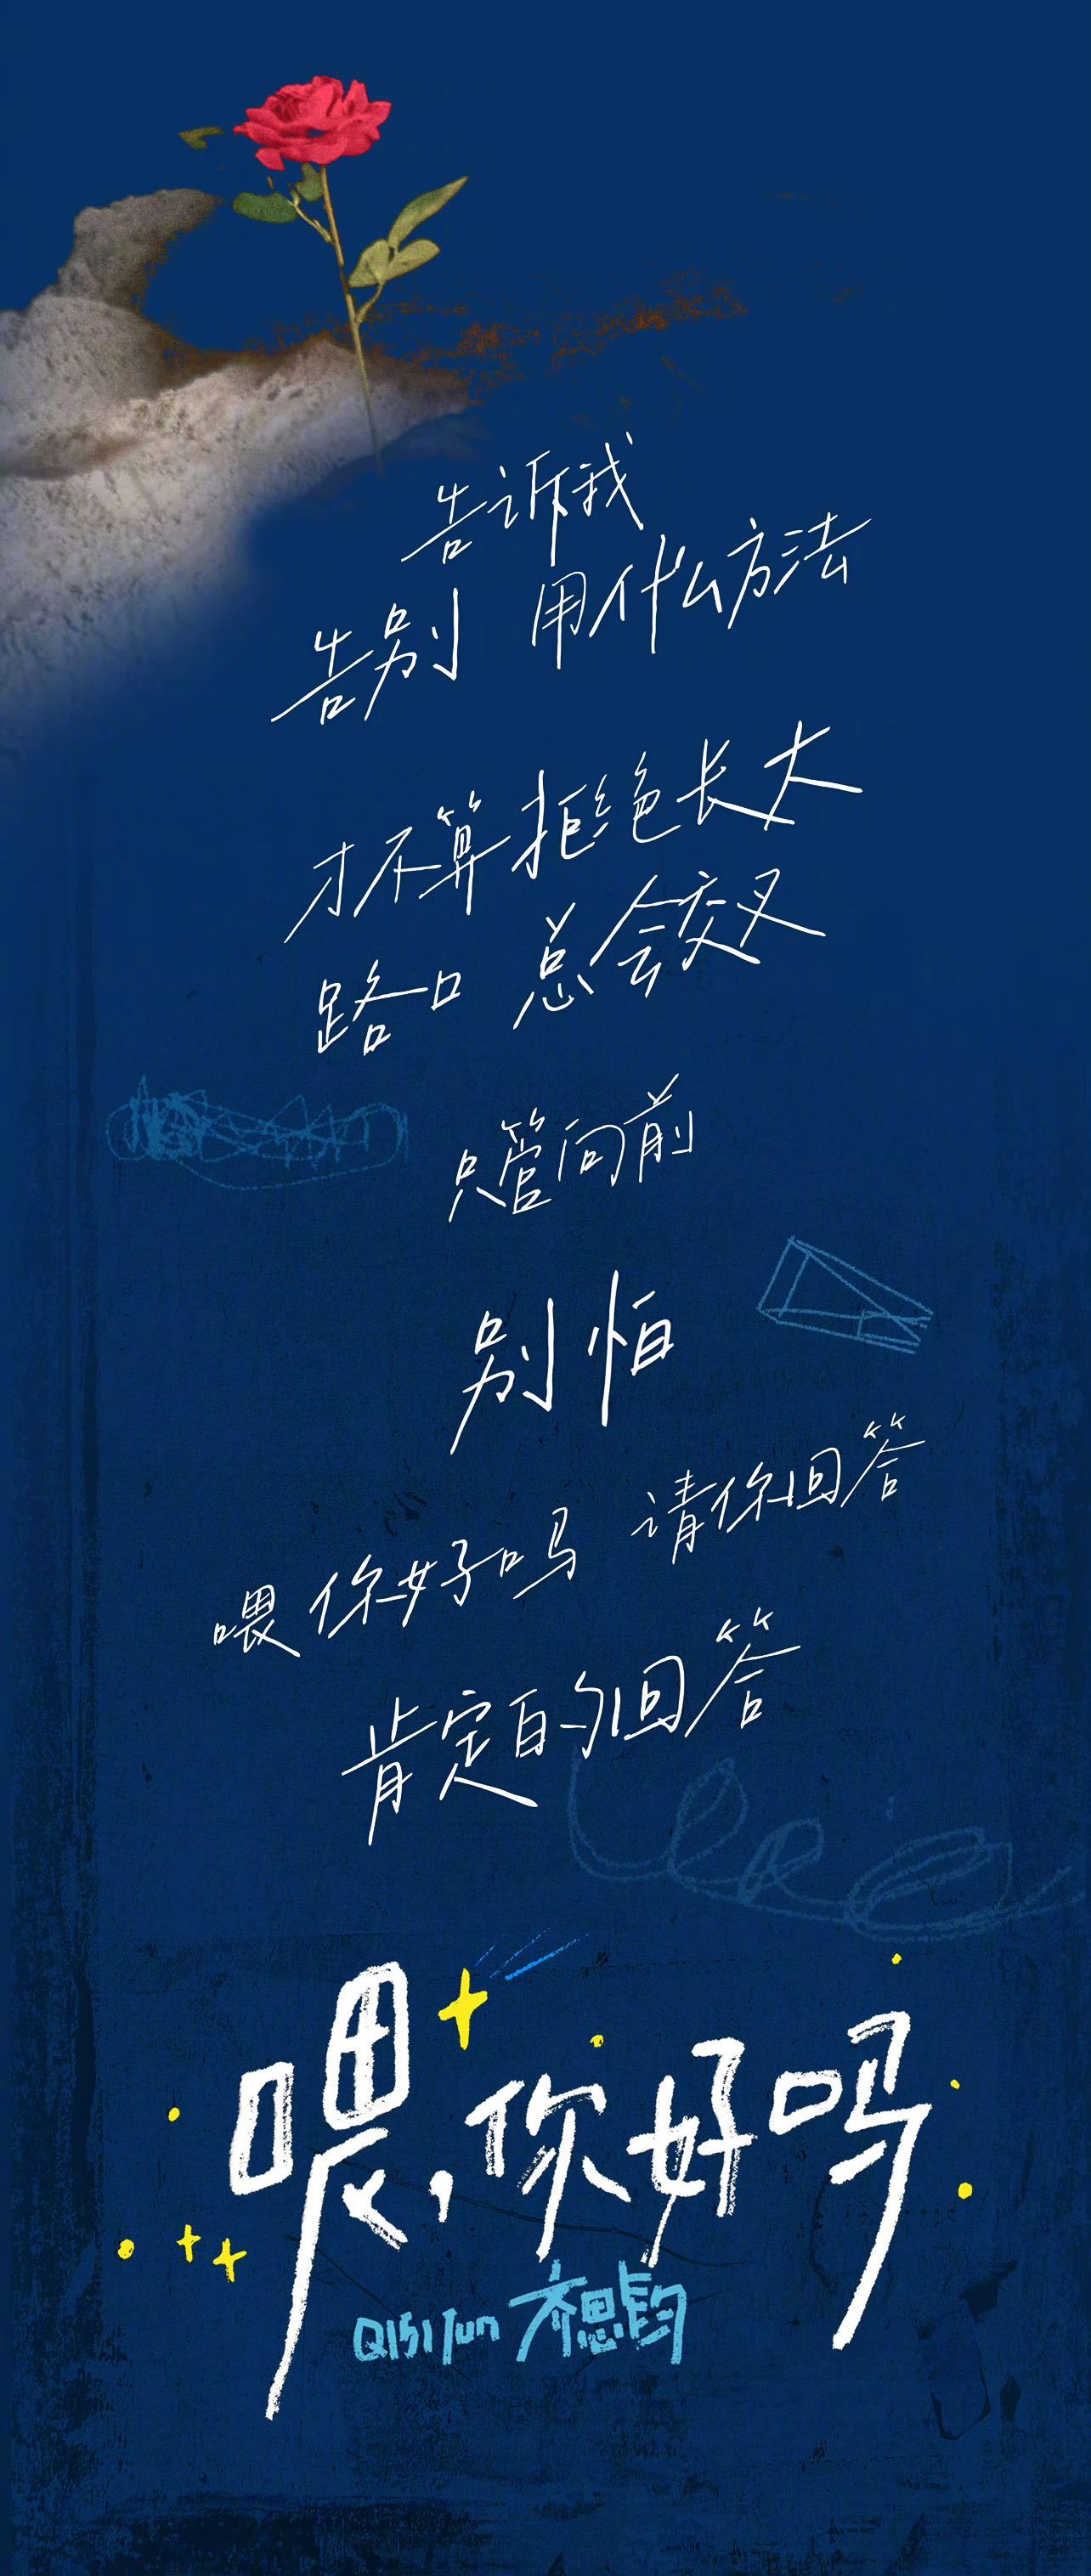 告诉我
告别 用什么方法
才不算拒绝长大
路口 总会交叉
只管向前
别怕
喂 你好吗 请你回答
肯定的回答
喂,你好吗
QISIJun 齐思钧